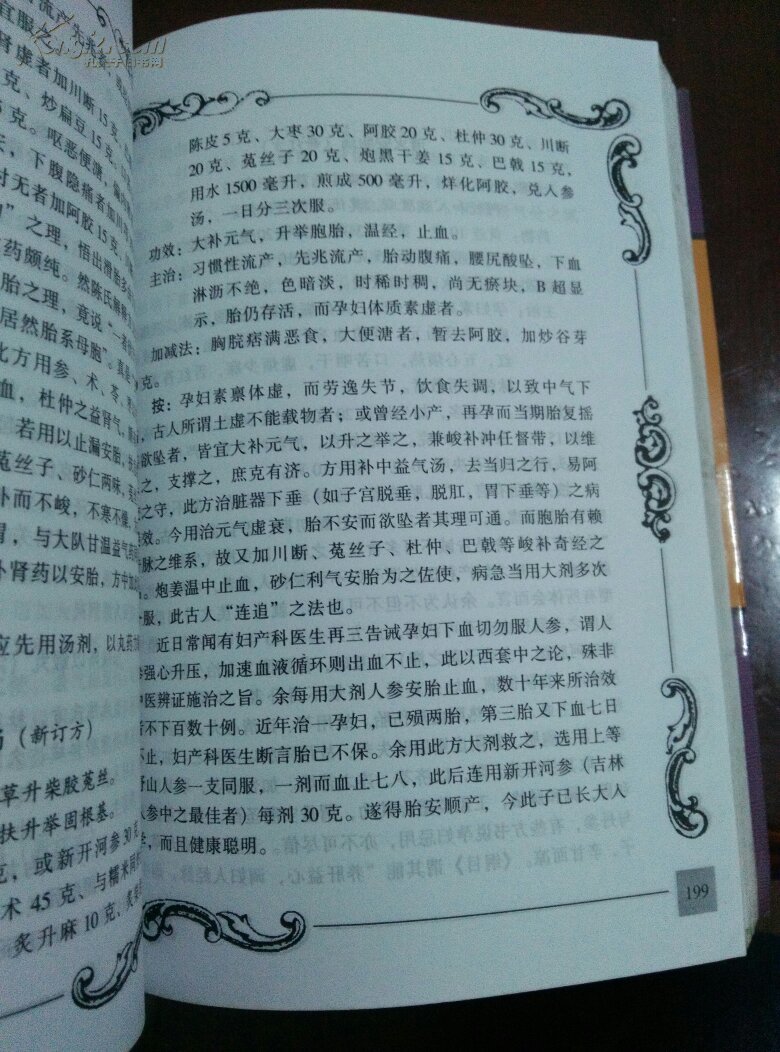 肾虚者加川断 15 克、
克、炒扁豆 15 克、
5 克。呕恶便溏，
下腹隐痛者加川
时无者加阿胶 15 克，
”之理，悟出滑胎
药颇纯。然陈氏解释
胎之理，竟说“一者
居然胎系母胞”。真
此方用参、术、苓、
血，杜仲之益肾气，
若用以止漏安胎，
菟丝子、砂仁两味，
补而不峻，不寒不
胃，与大队甘温益气药
补肾药以安胎，方中
应先用汤剂，以丸药
汤（新订方）
草升柴胶菟丝。
扶升举固根基。
克，或新开河参 30 克
术 45 克、与糯米
炙升麻 10 克、炙
陈皮 5 克、大枣 30 克、阿胶 20 克、杜仲 30 克、川断
20 克、菟丝子 20 克、炮黑干姜 15 克、巴戟 15 克，
用水 1500 毫升，煎成 500 毫升，烊化阿胶，兑人参
汤，一日分三次服。
功效：大补元气，升举胞胎，温经，止血。
主治：习惯性流产，先兆流产，胎动腹痛，腰尻酸坠，下血
淋沥不绝，色暗淡，时稀时稠，尚无瘀块，B 超显
示，胎仍存活，而孕妇体质素虚者。
加减法：胸脘痞满恶食，大便溏者，暂去阿胶，加炒谷芽
克。
按：孕妇素禀体虚，而劳逸失节，饮食失调，以致中气下
，古人所谓土虚不能载物者；或曾经小产，再孕而当期胎复摇
欲坠者，皆宜大补元气，以升之举之，兼峻补冲任督带，以维
之，支撑之，庶克有济。方用补中益气汤，去当归之行，易阿
之守，此方治脏器下垂（如子宫脱垂，脱肛，胃下垂等）之病
效。今用治元气虚衰，胎不安而欲坠者其理可通。而胞胎有赖
脉之维系，故又加川断、菟丝子、杜仲、巴戟等峻补奇经之
。炮姜温中止血，砂仁利气安胎为之佐使，病急当用大剂多次
服，此古人“连追”之法也。
近日常闻有妇产科医生再三告诫孕妇下血切勿服人参，谓人
参强心升压，加速血液循环则出血不止，此以西套中之论，殊非
中医辨证施治之旨。余每用大剂人参安胎止血，数十年来所治效
者不下百数十例。近年治一孕妇，已殒两胎，第三胎又下血七日
不止，妇产科医生断言胎已不保。余用此方大剂救之，选用上等
野山人参一支同服，一剂而血止七八，此后连用新开河参（吉林
人参中之最佳者）每剂 30 克。遂得胎安顺产，今此子已长大人
学，而且健康聪明。
199